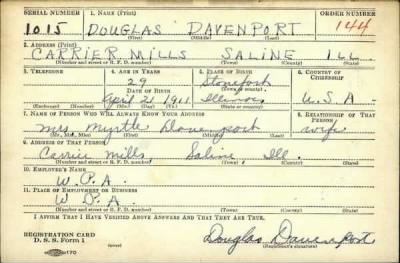 SERIAL NUMBER 1. NAME (Print) ORDER NUMBER
1015 DOUGLAS DAVENPORT 144
(First) (Middle) (Last)
2. ADDRESS (Print)
CARRIER MILLS SALINE ILL.
(Number and street or R. F. D. number) (Town) (County) (State)
3. TELEPHONE 4. AGE IN YEARS 5. PLACE OF BIRTH 6. COUNTRY OF CITIZENSHIP
29 Stonefort
(Town or county)
DATE OF BIRTH
April 21 1911 Illinois U.S.A-
(Exchange) (Number) (Mo.) (Day) (Yr.) (State or country)
7. NAME OF PERSON WHO WILL ALWAYS KNOW YOUR ADDRESS 8. RELATIONSHIP OF THAT PERSON
Mrs. Myrtle Davenport wife
(Mr., Mrs., Miss) (First) (Middle) (Last)
9. ADDRESS OF THAT PERSON
Carrier Mills, Saline, Ill.
(Number and street or R. F. D. number) (Town) (County) (State)
10. EMPLOYER'S NAME
W.P.A
11. PLACE OF EMPLOYMENT OR BUSINESS
W.P.A
(Number and street or R. F. D. number) (Town) (County) (State)
I AFFIRM THAT I HAVE VERIFIED ABOVE ANSWERS AND THAT THEY ARE TRUE.
REGISTRATION CARD
D. S. S. Form 1
Douglas Davenport
(Registrant's signature)